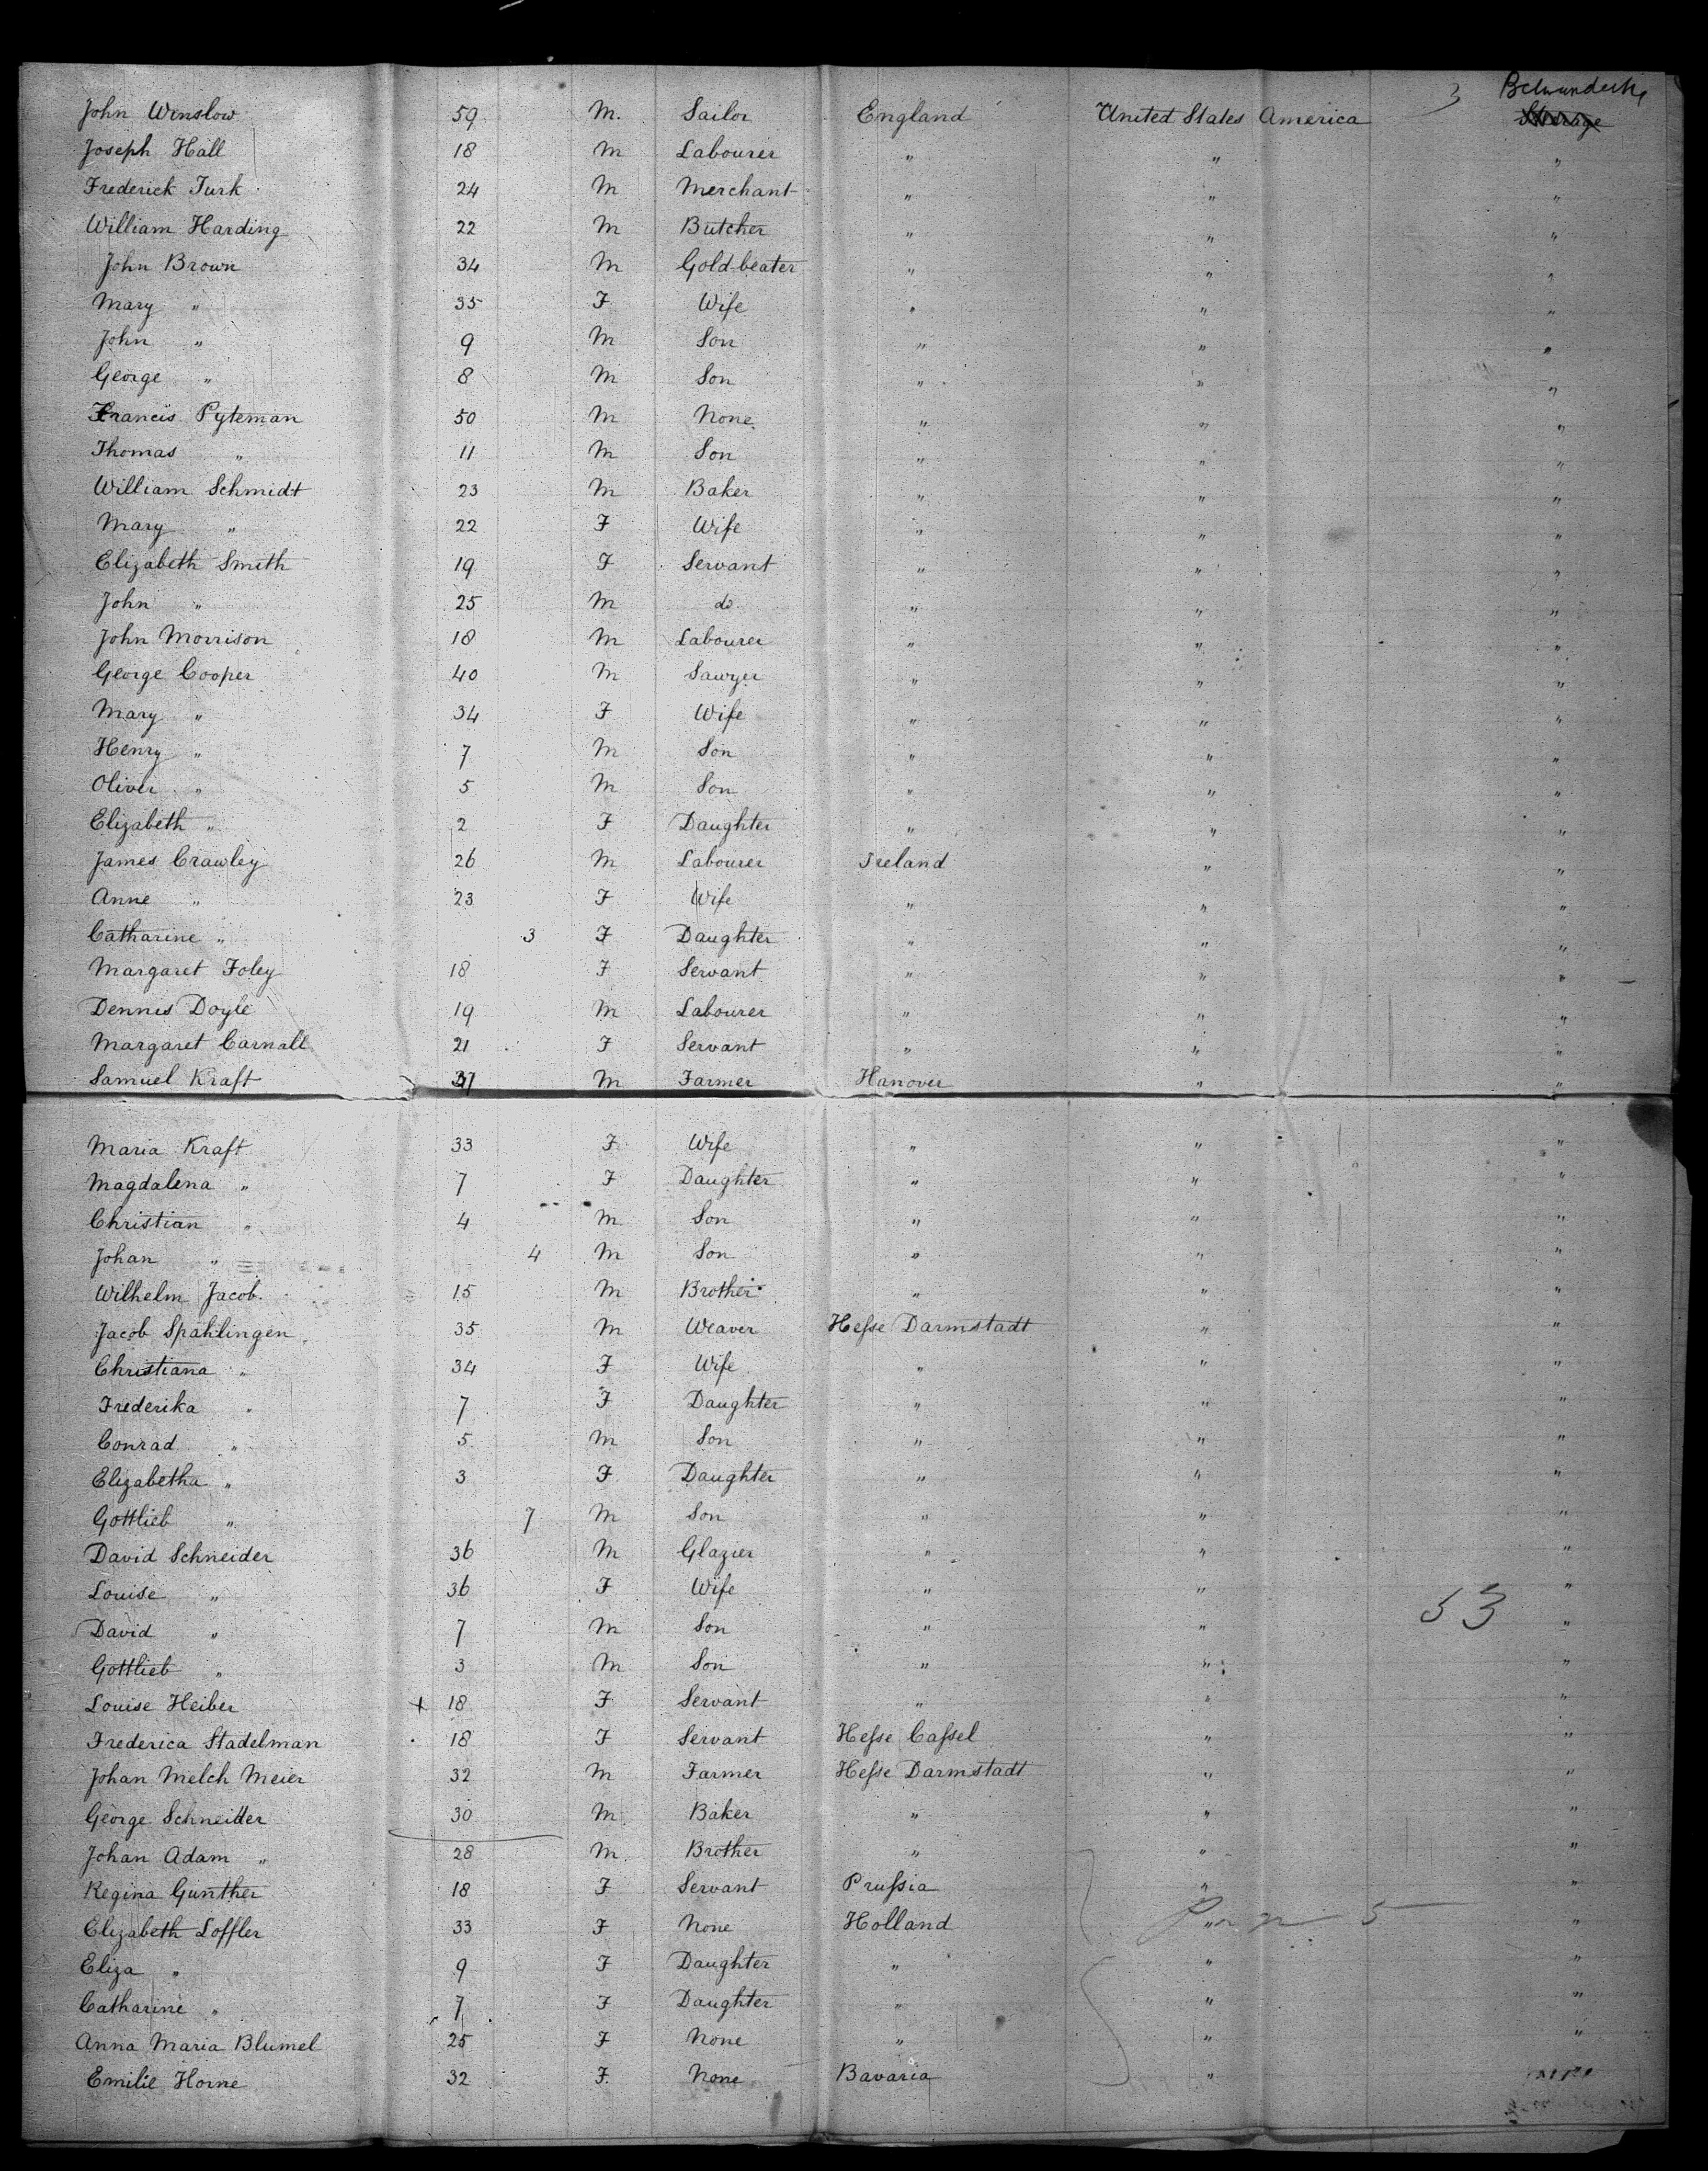 Betwixndecks
3
John Winslow 59 M. Sailor England United States America Steerage
Joseph Hall 18 M Labourer " " "
Frederick Turk 24 M Merchant " " "
William Harding 22 M Butcher " " "
John Brown 34 M Gold-beater " " "
Mary " 35 F Wife " " "
John " 9 M Son " " "
George " 8 M Son " " "
Francis Pyteman 50 M None " " "
Thomas " 11 M Son " " "
William Schmidt 23 M Baker " " "
Mary " 22 F Wife " " "
Elizabeth Smith 19 F Servant " " "
John " 25 M do " " "
John Morrison 18 M Labourer " " "
George Cooper 40 M Sawyer " " "
Mary " 34 F Wife " " "
Henry " 7 M Son " " "
Oliver " 5 M Son " " "
Elizabeth " 2 F Daughter " " "
James Crawley 26 M Labourer Ireland " "
Anne " 23 F Wife " " "
Catharine " 3 F Daughter " " "
Margaret Foley 18 F Servant " " "
Dennis Doyle 19 M Labourer " " "
Margaret Carnall 21 F Servant " " "
Samuel Kraft 37 M Farmer Hanover " "
Maria Kraft 33 F Wife " " "
Magdalena " 7 F Daughter " " "
Christian " 4 M Son " " "
Johan " 4 M Son " " "
Wilhelm Jacob. 15 M Brother " " "
Jacob Spahlingen 35 M Weaver Hesse Darmstadt " "
Christiana " 34 F Wife " " "
Frederika " 7 F Daughter " " "
Conrad " 5 M Son " " "
Elizabetha " 3 F Daughter " " "
Gottlieb " 7 M Son " " "
David Schneider 36 M Glazier " " "
Louise " 36 F Wife " " "
53
David " 7 M Son " " "
Gottlieb " 3 M Son " " "
Louise Heiber + 18 F Servant " " "
Frederica Stadelman 18 F Servant Hesse Cassel " "
Johan Melch Meier 32 M Farmer Hesse Darmstadt " "
George Schneitter 30 M Baker " " "
Johan Adam " 28 M. Brother " " "
Regina Gunther 18 F Servant Prussia " "
Elizabeth Loffler 33 F None Holland " 5 "
Eliza " 9 F Daughter " " "
Catharine " 7 F Daughter " " "
Anna Maria Blumel 25 F None " " "
Emilie Horne 32 F. None Bavaria "